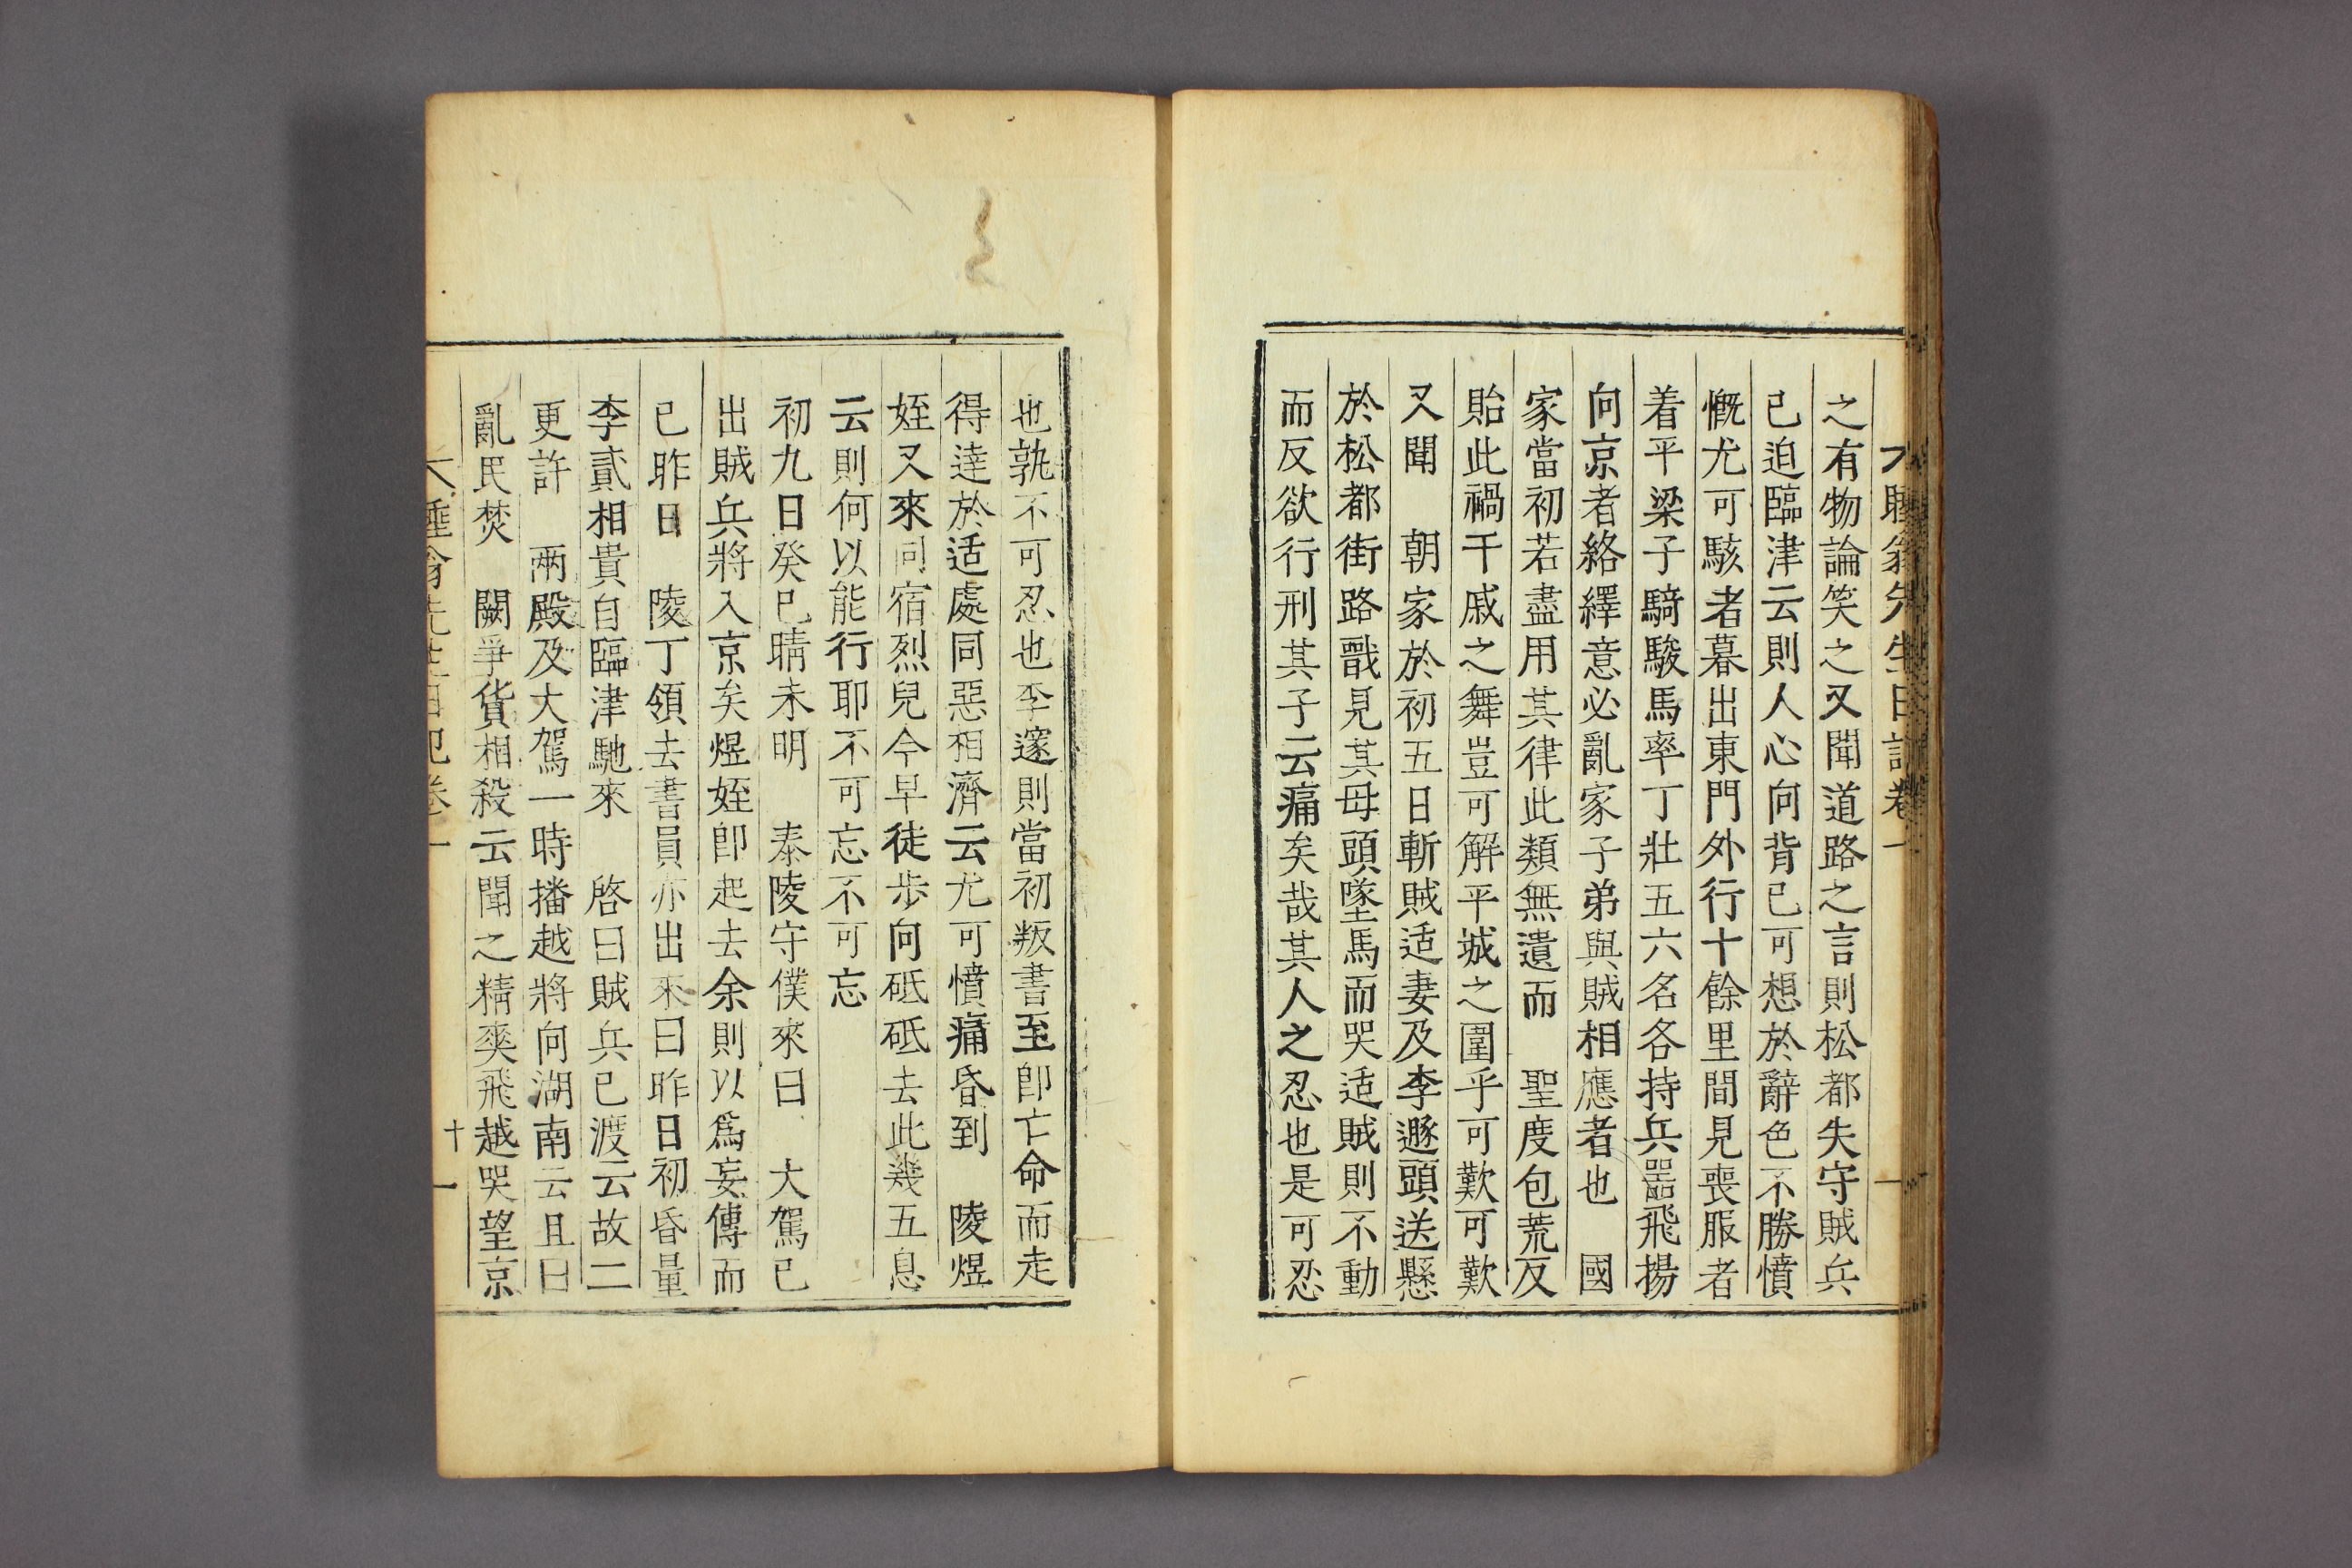 睡翁先生日記卷一
之有物論笑之又聞道路之言則松都失守賊兵
已迫臨津云則人心向背已可想於辭色不勝憤
慨尤可駭者暮出東門外行十餘里間見喪服者
着平梁子騎駿馬率丁壯五六名各持兵噐飛揚
向京者絡繹意必亂家子弟與賊相應者也 國
家當初若盡用其律此類無遺而 聖度包荒反
貽此禍干戚之舞豈可解平城之圍乎可歎可歎
又聞 朝家於初五日斬賊适妻及李遯頭送懸
於松都街路戬見其母頭墜馬而哭适賊則不動
而反欲行刑其子云痛矣哉其人之忍也是可忍
也孰不可忍也李邃則當初叛書至卽亡命而走
得達於适處同惡相濟云尤可憤痛昏到 陵煜
姪又來同宿烈兒今早徒歩向砥砥去此幾五息
云則何以能行耶不可忘不可忘
初九日癸巳晴未明 泰陵守僕來曰 大駕已
出賊兵將入京矣煜姪卽起去余則以爲妄傳而
已昨日 陵丁領去書員亦出來曰昨日初昏量
李貳相貴自臨津馳來 啓曰賊兵已渡云故二
更許 兩殿及大駕一時播越將向湖南云且曰
亂民焚 闕爭貨相殺云聞之精爽飛越哭望京
睡翁先生日記卷一 十一